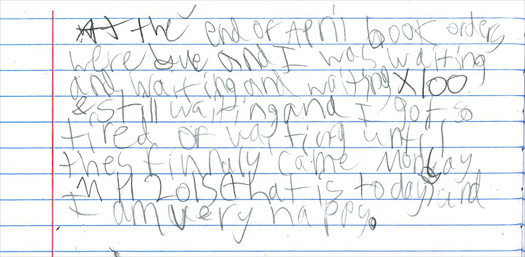 At the end of April book orders
were due and I was waiting
and waiting and waiting X100
& still waiting and I got so
tired of waiting until
they finnaly came Monday
11 2015 that is today and
I am very happy.